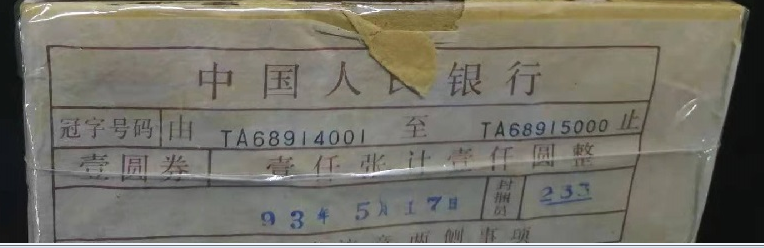 中国人民银行
冠字号码 由 TA68914001 至 TA68915000 止
壹圆券 壹仟张计壹仟圆整
93年5月17日 封捆员 233
意两侧事项